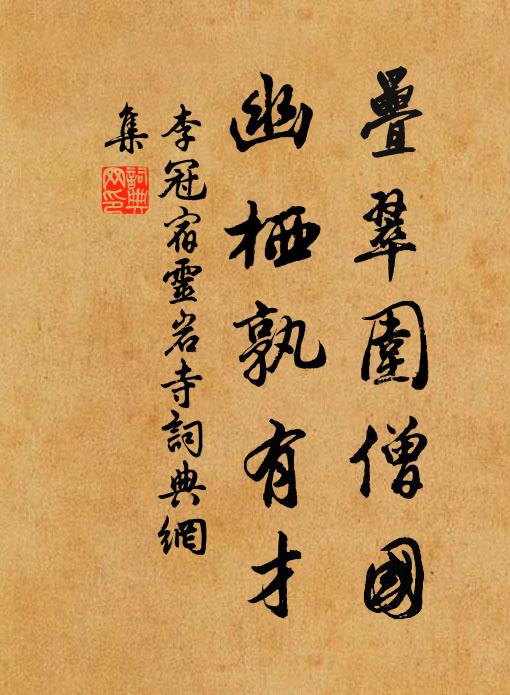 疊翠圍僧國
幽栖孰有才
李冠宿靈岩寺詞典網
集
詞典網印